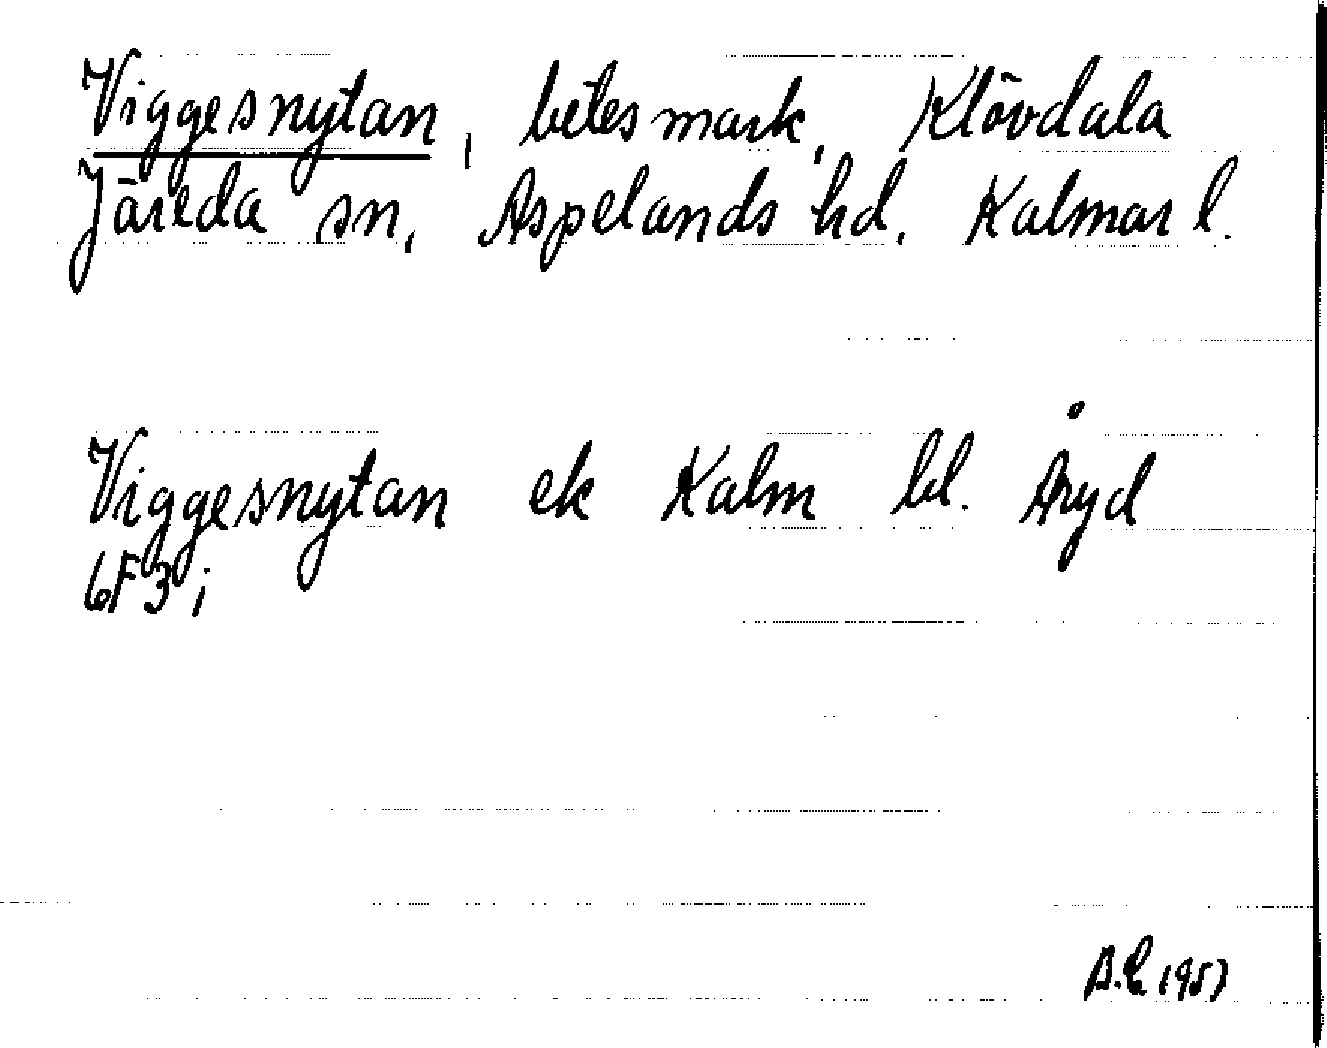 Viggesnytan, betesmark, Klövdala
Järeda sn, Aspelands hd, Kalmar l.
Viggesnytan ek Kalm bl. Åryd
6F3i
1957